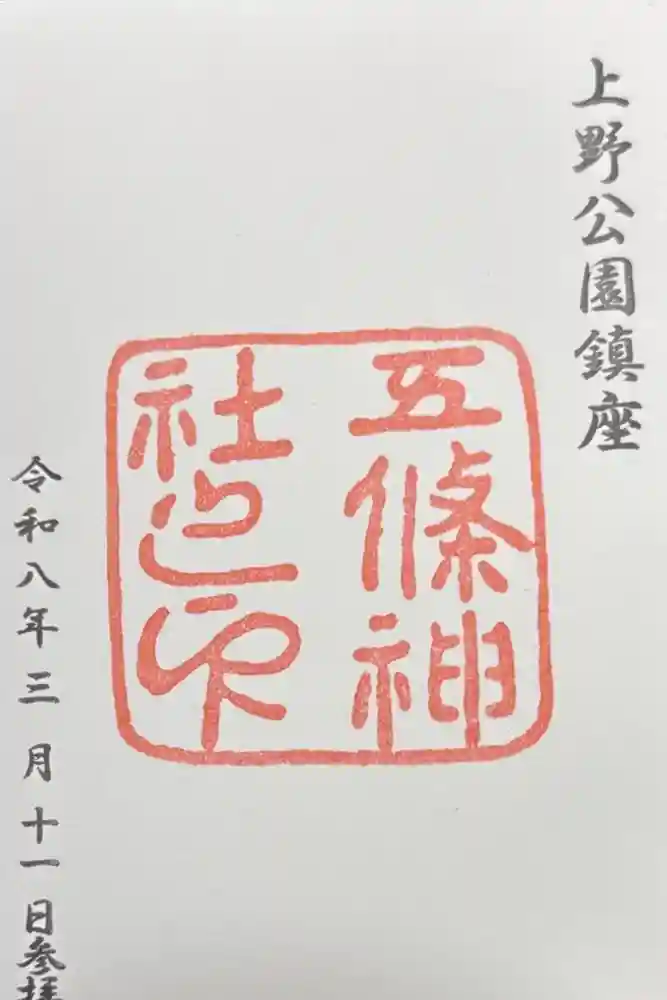 上野公園鎮座
五條神
社之印
令和八年三月十一日参拝